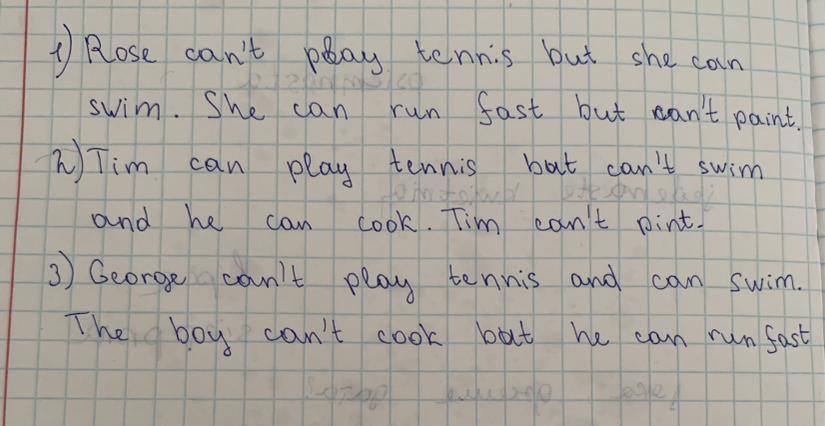 1) Rose can't play tennis but she can
swim. She can run fast but can't paint.
2) Tim can play tennis but can't swim
and he can cook. Tim can't pint.
3) George can't play tennis and can swim.
The boy can't cook but he can run fast